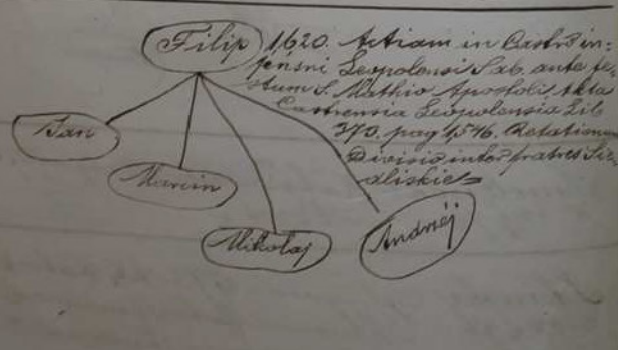 Filip
1620. Actiam in Castro in=
Leopolensi Sab. ante fe=
stum S. Mathio Apostoli. Akta
Castrensia Leopolensia Lib
370. pag 1576. Relationum
Divisio inter fratres
Jan
Marcin
Mikołaj
Andrzéj